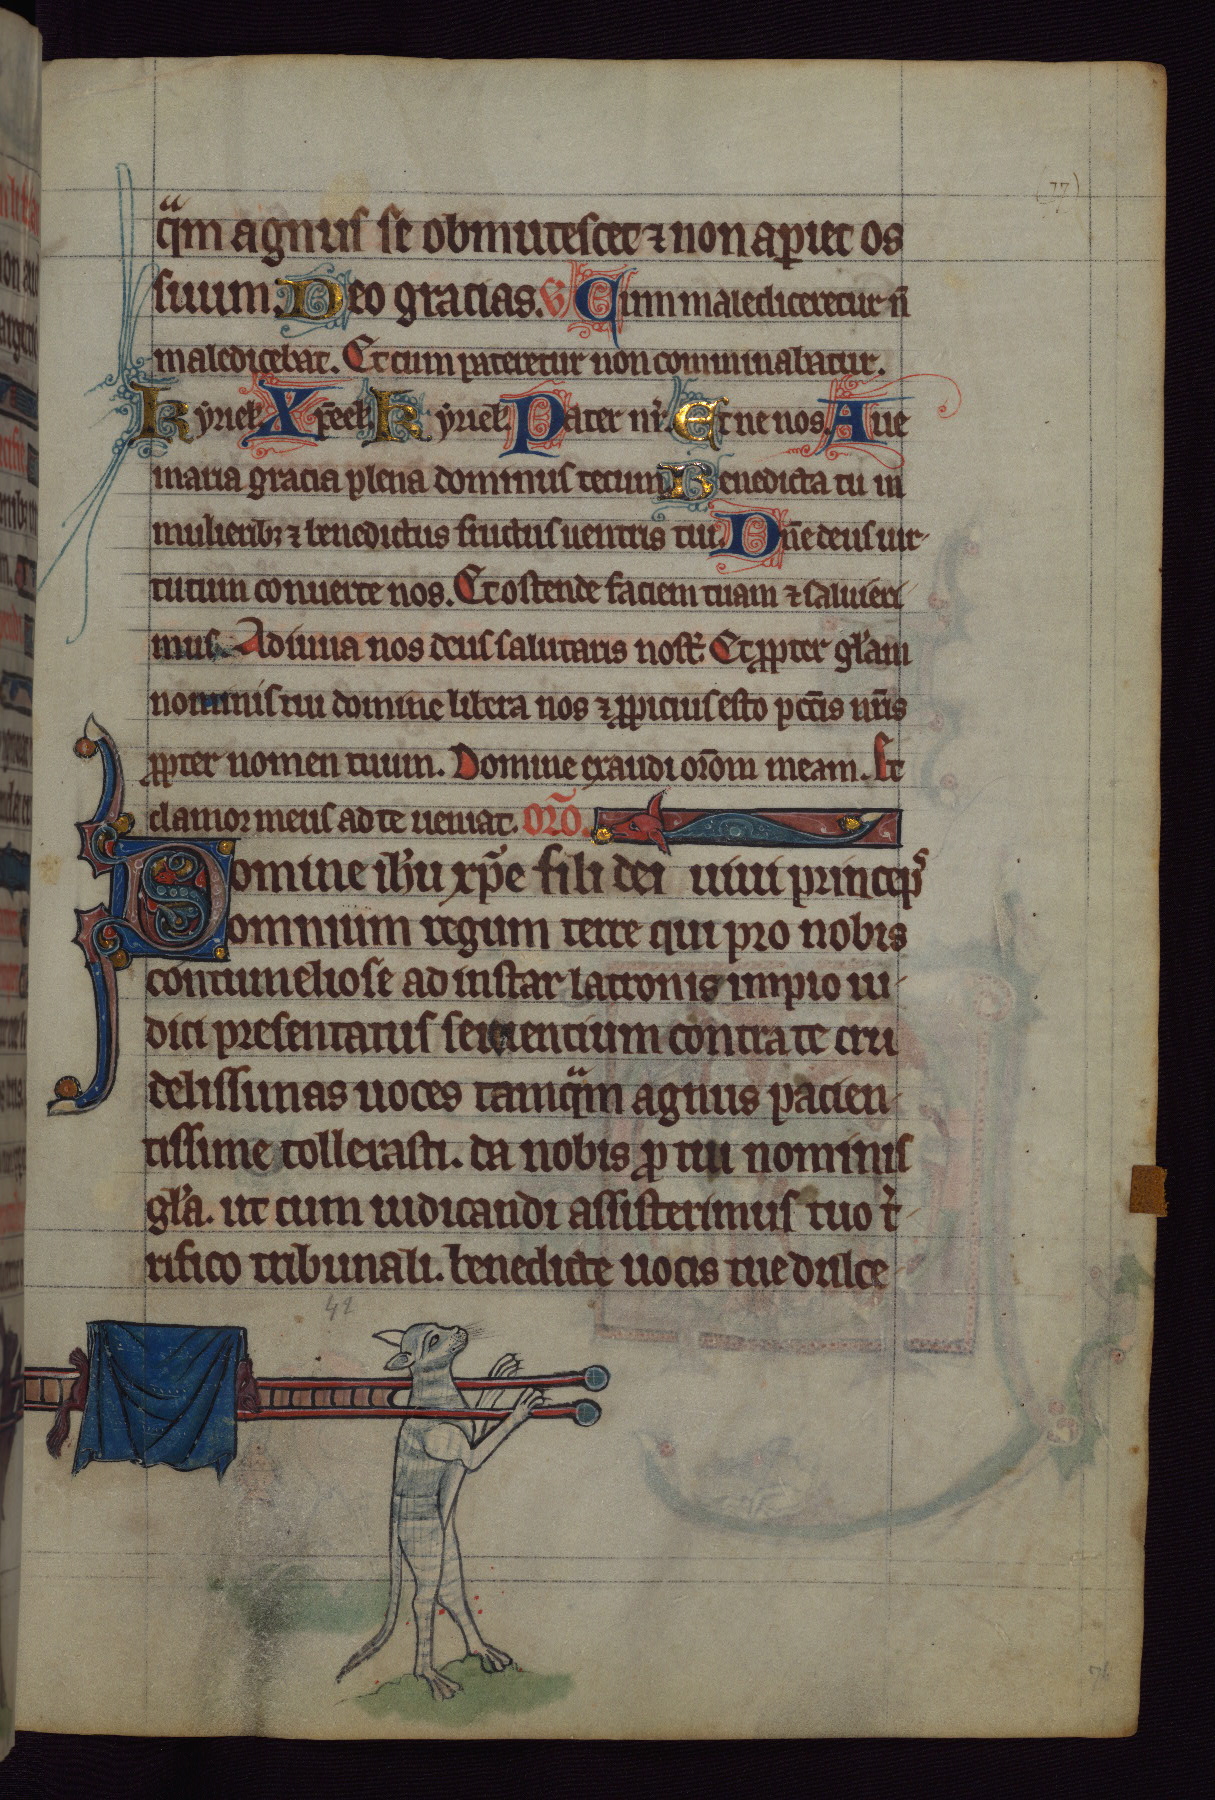 (77)
q̃m agnus se obmutescet ⁊ non aperiet os
suum. Deo gracias. V Cum malediceretur ñ
maledicebat. Et cum pateretur non comminabatur.
kyriel. Xp̃eel. kyriel. Pater nr̃. Et ne nos. Aue
maria gracia plena dominus tecum Benedicta tu in
mulieribꝫ ⁊ benedictus fructus uentris tui. Dñe deus uir-
tutum conuerte nos. Et ostende faciem tuam ⁊ salui eri-
mus. Adiuua nos deus salutaris nostr̃. Et ꝓpter gl̃am
nominis tui domine libera nos ⁊ ꝓpicius esto pctĩs nr̃is
ꝓpter nomen tuum. Domine exaudi orõm meam. Et
clamor meus ad te ueniat. orõ.
Domine ih̃u xp̃e fili dei uiui princeps
omnium regum terre qui pro nobis
contumeliose ad instar latronis impio iu-
dici presentatus seuientium contra te cru
delissimas uoces tamq̃m agnus pacien-
tissime tollerasti. da nobis ꝓ tui nominis
gl̃a. ut cum iudicandi assisterimus tuo t̃-
rifico tribunali. benedicte uocis tue dulce
42
76